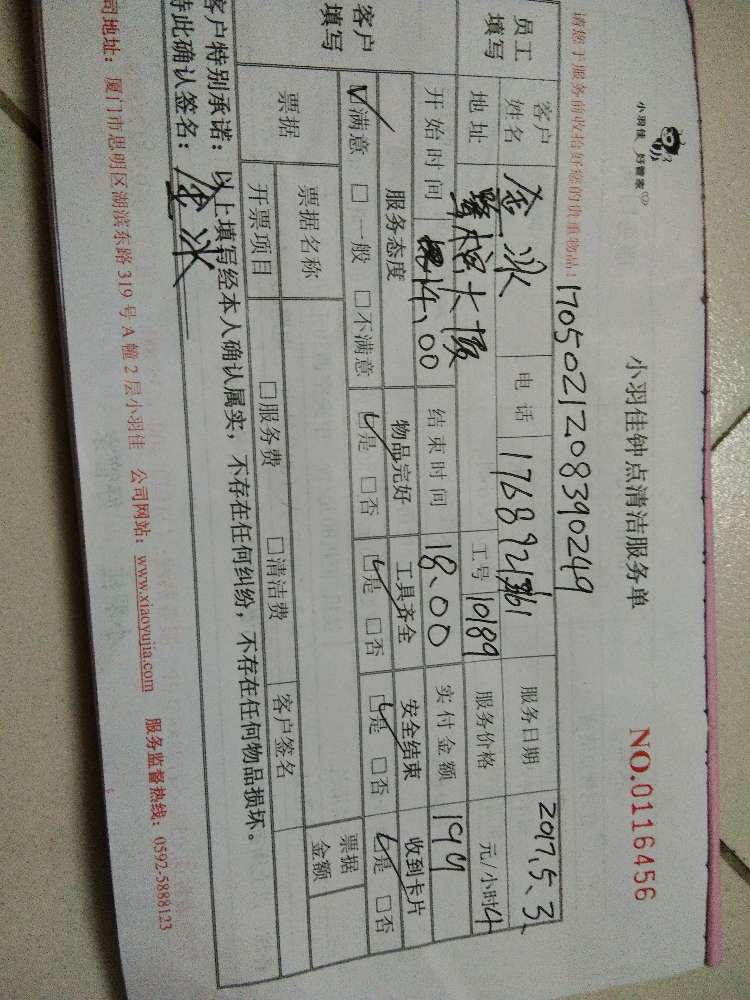 小羽佳 好管家
小羽佳钟点清洁服务单
NO.0116456
请您于服务前收拾好您的贵重物品!
170502120839 0249
员工填写
客户姓名 金冰 电话 服务日期 2017.5.3
地址 大厦 工号 10189 服务价格 元/小时 4
开始时间 14.00 结束时间 18.00 实付金额
客户填写
服务态度 物品完好 工具齐全 安全结束 收到卡片
☑满意 □一般 □不满意 ☑是 □否 ☑是 □否 ☑是 □否 ☑是 □否
票据 票据名称 □服务费 □清洁费 票据金额
开票项目 客户签名
客户特别承诺：以上填写经本人确认属实，不存在任何纠纷，不存在任何物品损坏。
特此确认签名：金冰
司地址：厦门市思明区湖滨东路 319 号 A 幢 2 层小羽佳 公司网站：www.xiaoyujia.com 服务监督热线：0592-5888123